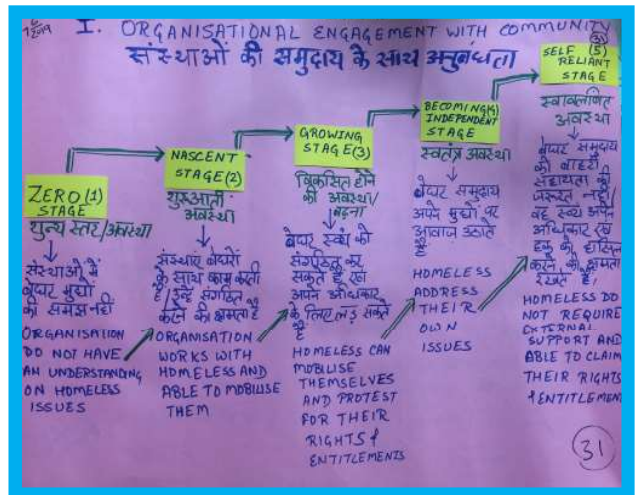 I. ORGANISATIONAL ENGAGEMENT WITH COMMUNITY
संस्थाओं की समुदाय के साथ अनुबंधता
ZERO (1)
STAGE
शुन्य स्तर/अवस्था
संस्थाओं में
बेघर मुद्दों
की समझ नहीं
ORGANISATION
DO NOT HAVE
AN UNDERSTANDING
ON HOMELESS
ISSUES
NASCENT
STAGE (2)
शुरुआती
अवस्था
संस्थाएं बेघरों
के साथ काम करती
है / उन्हें संगठित
करने की क्षमता है
ORGANISATION
WORKS WITH
HOMELESS AND
ABLE TO MOBILISE
THEM
GROWING
STAGE (3)
विकसित होने
की अवस्था/
बढ़ना
बेघर स्वयं को
संगठित कर
सकते है एवं
अपने अधिकार
के लिए लड़ सकते
है
HOMELESS CAN
MOBILISE
THEMSELVES
AND PROTEST
FOR THEIR
RIGHTS &
ENTITLEMENTS
BECOMING (4)
INDEPENDENT
STAGE
स्वतंत्र अवस्था
बेघर समुदाय
अपने मुद्दों पर
आवाज उठाते
है
HOMELESS
ADDRESS
THEIR
OWN
ISSUES
SELF (5)
RELIANT
STAGE
अवस्था
बेघर समुदाय
को बाहरी
सहायता की
जरूरत नहीं/
वह स्वयं अपने
अधिकार एवं
हक को हासिल
करने की क्षमता
रखते है,
HOMELESS DO
NOT REQUIRE
EXTERNAL
SUPPORT AND
ABLE TO CLAIM
THEIR RIGHTS
& ENTITLEMEN
31